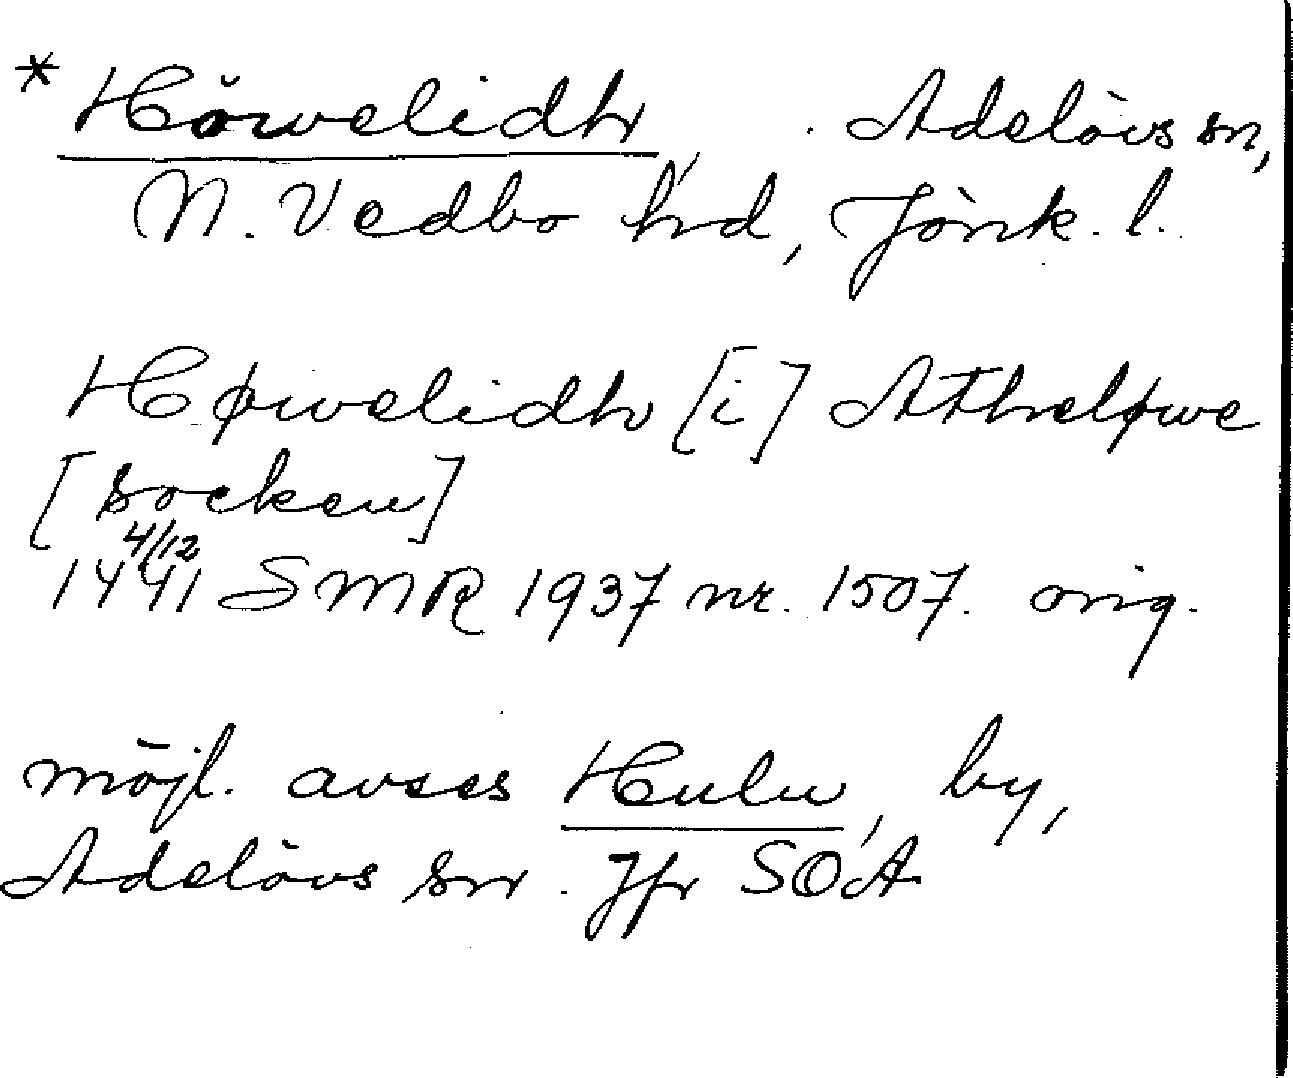 * Höwelidh, Adelövs sn,
N. Vedbo hd, Jönk. l.
Høwelidh [i] Atheløwe
[socken]
4/12
1441 SMR 1937 nr. 1507. orig.
möjl. avses Hulu, by,
Adelövs sn. Jfr SOÄ